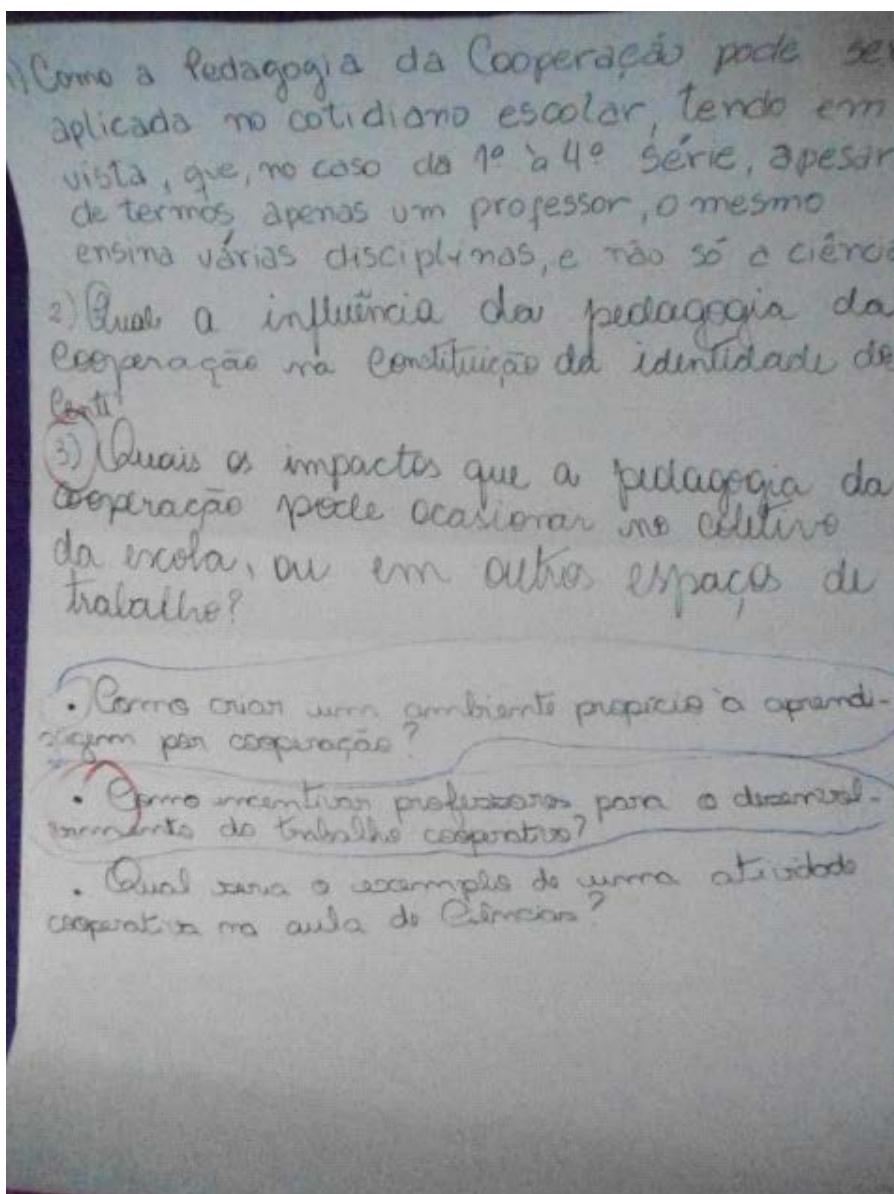 1) Como a Pedagogia da Cooperação pode se
aplicada no cotidiano escolar, tendo em
vista, que, no caso da 1º à 4º série, apesar
de termos apenas um professor, o mesmo
ensina várias disciplinas, e não só a ciência
2) Qual a influência da pedagogia da
cooperação na constituição da identidade do
3) Quais os impactos que a pedagogia da
cooperação pode ocasionar no coletivo
da escola, ou em outros espaços de
trabalho?
• Como criar um ambiente propício à aprendi-
zagem por cooperação?
• Como incentivar professores para o desenvol-
vimento do trabalho cooperativo?
• Qual seria o exemplo de uma atividade
cooperativa na aula de Ciências?